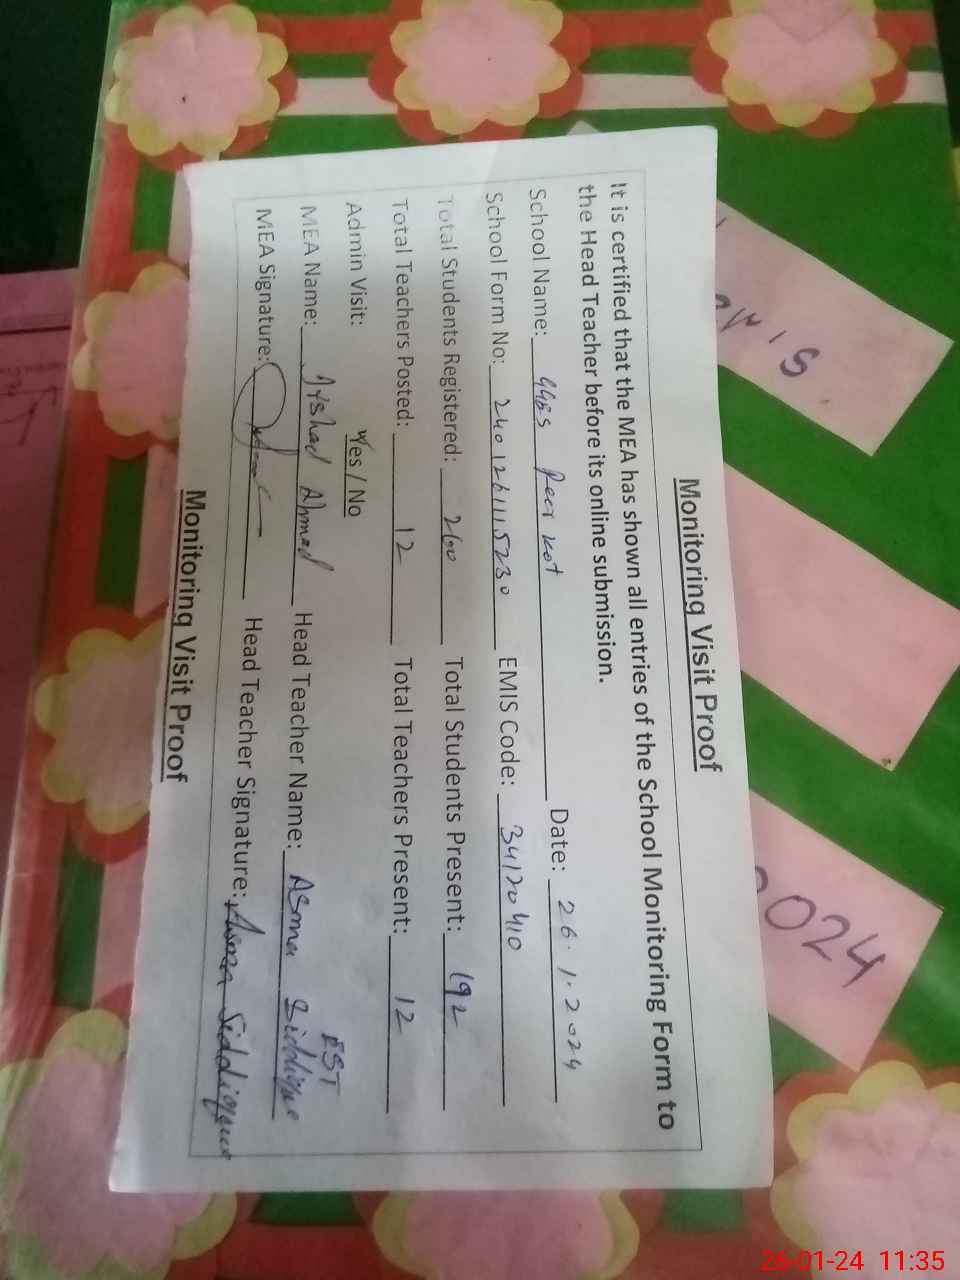 Monitoring Visit Proof
It is certified that the MEA has shown all entries of the School Monitoring Form to
the Head Teacher before its online submission.
School Name: GGES Peer Kot Date: 26.1.2024
School Form No: 2401261115230 EMIS Code: 34120410
Total Students Registered: 260 Total Students Present: 192
Total Teachers Posted: 12 Total Teachers Present: 12
Admin Visit: Yes / No
EST
MEA Name: Irshad Ahmed Head Teacher Name: Asma Siddique
MEA Signature: Head Teacher Signature: Asma Siddique
Monitoring Visit Proof
024
26-01-24 11:35